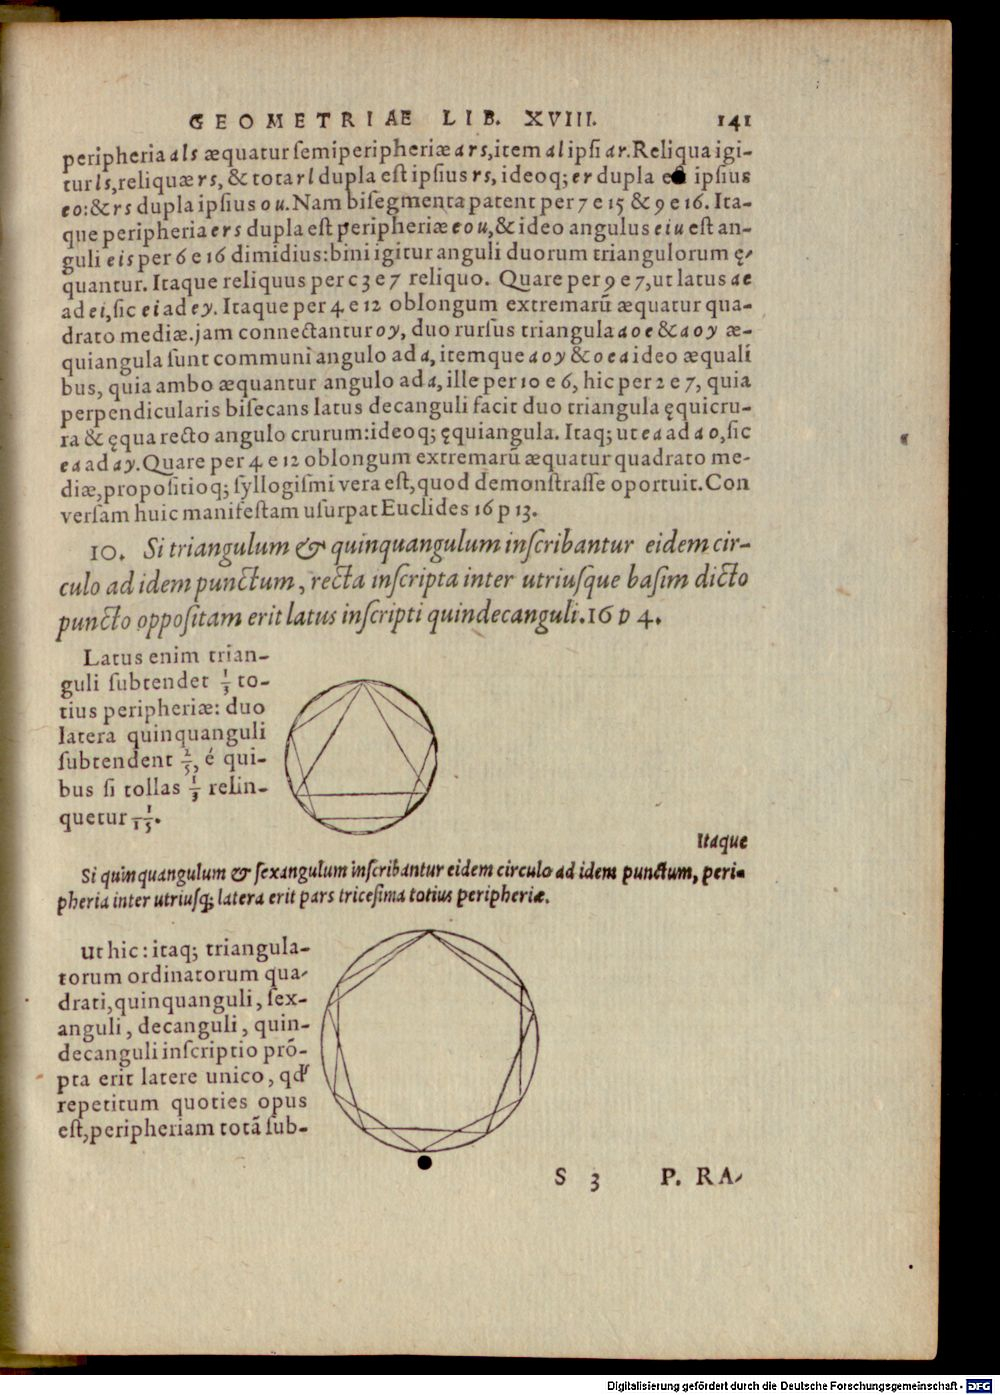 GEOMETRIAE LIB. XVIII. 141
peripheria als æquatur ſemiperipheriæ ars, item al ipſi ar. Reliqua igi-
tur ls, reliquæ rs, & tota rl dupla eſt ipſius rs, ideoq; er dupla e ipſius
eo: & rs dupla ipſius ou. Nam biſegmenta patent per 7 e 15 & 9 e 16. Ita-
que peripheria ers dupla eſt peripheriæ eou, & ideo angulus eiu eſt an-
guli eis per 6 e 16 dimidius: bini igitur anguli duorum triangulorum ę-
quantur. Itaque reliquus per c 3 e 7 reliquo. Quare per 9 e 7, ut latus ae
ad ei, ſic ei ad ey. Itaque per 4 e 12 oblongum extremarũ æquatur qua-
drato mediæ. jam connectantur oy, duo rurſus triangula aoe & aoy æ-
quiangula ſunt communi angulo ad a, itemque aoy & oea ideo æquali
bus, quia ambo æquantur angulo ad a, ille per 10 e 6, hic per 2 e 7, quia
perpendicularis biſecans latus decanguli facit duo triangula ęquicru-
ra & ęqua recto angulo crurum: ideoq; ęquiangula. Itaq; ut ea ad ao, ſic
ea ad ay. Quare per 4 e 12 oblongum extremarũ æquatur quadrato me-
diæ, propoſitioq; ſyllogiſmi vera eſt, quod demonſtraſſe oportuit. Con
verſam huic manifeſtam uſurpat Euclides 16 p 13.
10. Si triangulum & quinquangulum inſcribantur eidem cir-
culo ad idem punctum, recta inſcripta inter utriuſque baſim dicto
puncto oppoſitam erit latus inſcripti quindecanguli. 16 p 4.
Latus enim trian-
guli ſubtendet 1/3 to-
tius peripheriæ: duo
latera quinquanguli
ſubtendent 2/5, é qui-
bus ſi tollas 1/3 relin-
quetur 1/15.
Itaque
Si quinquangulum & ſexangulum inſcribantur eidem circulo ad idem punctum, peri-
pheria inter utriuſq; latera erit pars triceſima totius peripheriæ.
Ut hic: itaq; triangula-
torum ordinatorum qua-
drati, quinquanguli, ſex-
anguli, decanguli, quin-
decanguli inſcriptio prõ-
pta erit latere unico, qđ
repetitum quoties opus
eſt, peripheriam totã ſub-
S 3 P. RA-
Digitalisierung gefördert durch die Deutsche Forschungsgemeinschaft - DFG